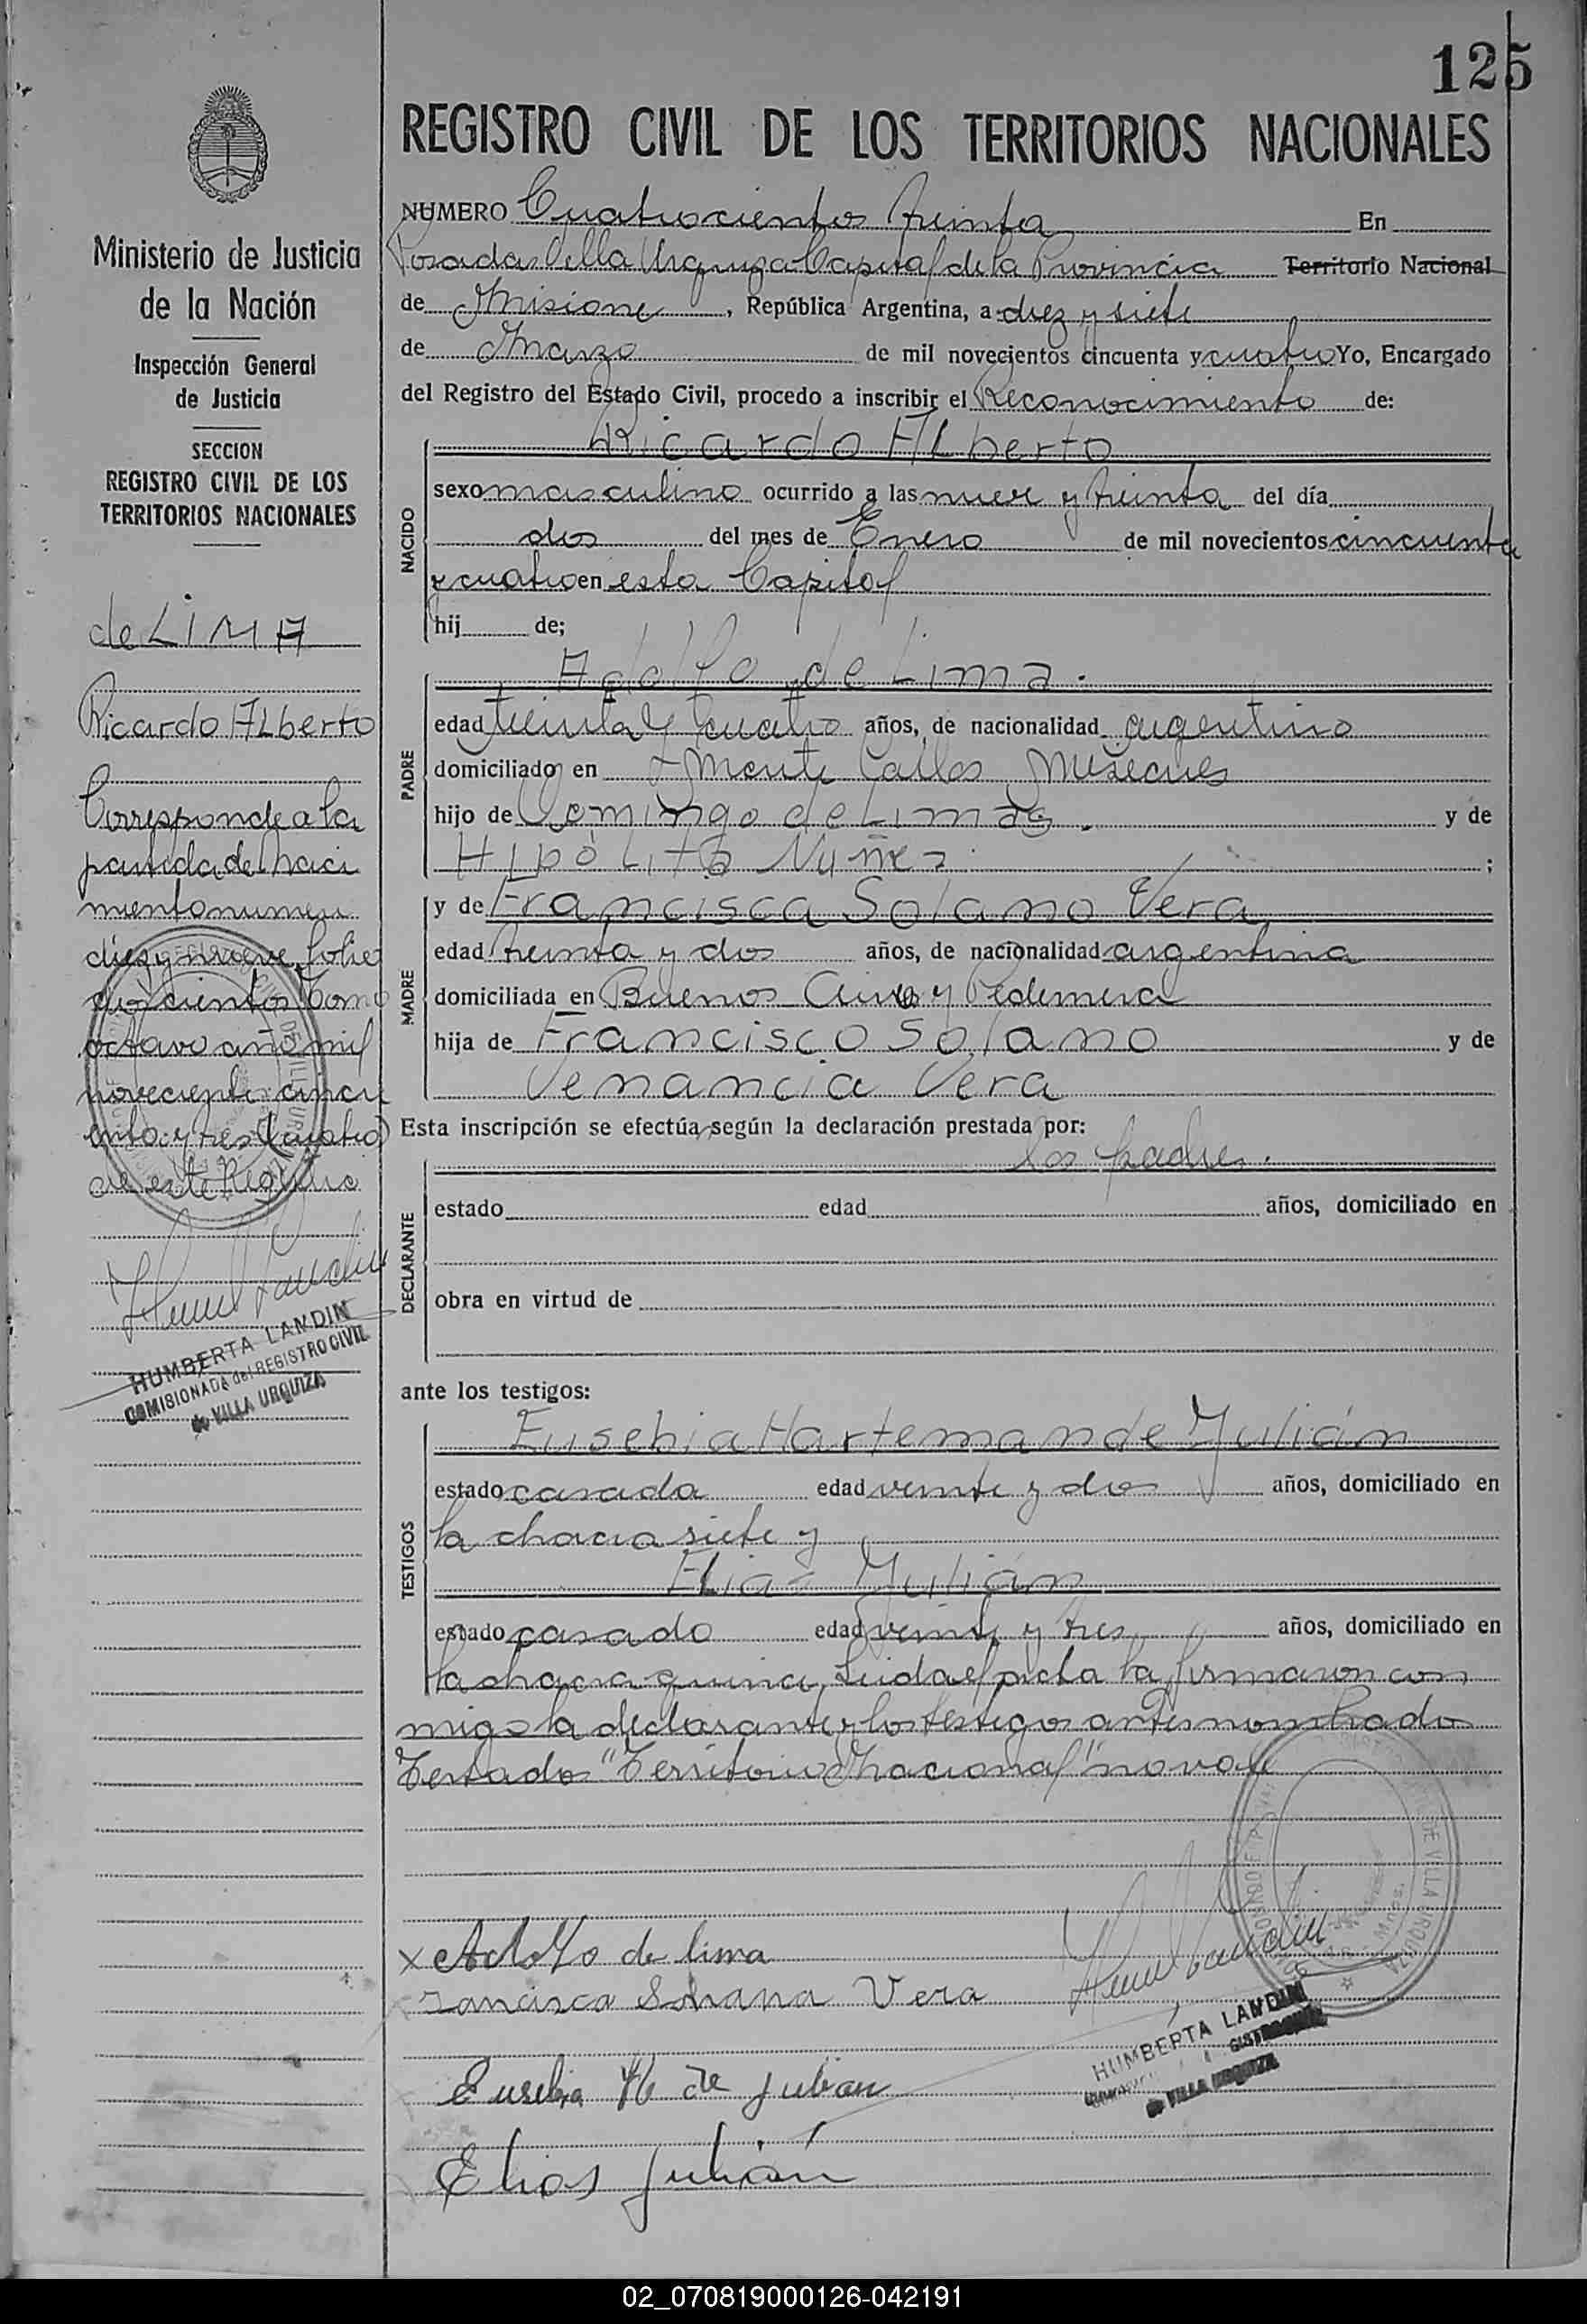 125
REGISTRO CIVIL DE LOS TERRITORIOS NACIONALES
Ministerio de Justicia
de la Nación
Inspección General
de Justicia
SECCION
REGISTRO CIVIL DE LOS
TERRITORIOS NACIONALES
de LiMA
Ricardo ALberto
Corresponde a la
partida de naci
miento numero
diez y nueve folio
doscientos tomo
octavo año mil
novecientos cincu
enta y tres (cuatro)
de este Registro
HUMBERTA LANDIN
COMISIONADA del REGISTRO CIVIL
de VILLA URQUIZA
NUMERO Cuatrocientos treinta En
Posadas Villa Urquiza Capital de la Provincia Territorio Nacional
de Misiones, República Argentina, a diez y siete
de Marzo de mil novecientos cincuenta y cuatro Yo, Encargado
del Registro del Estado Civil, procedo a inscribir el Reconocimiento de:
NACIDO
Ricardo ALberto
sexo masculino ocurrido a las nueve y treinta del día
dos del mes de Enero de mil novecientos cincuenta
y cuatro en esta Capital
hij de;
PADRE
Adolfo de Lima.
edad treinta y cuatro años, de nacionalidad argentino
domiciliado en
hijo de Domingo de Lima y de
HipóLita Nuñez ;
MADRE
y de Francisca Solano Vera
edad treinta y dos años, de nacionalidad argentina
domiciliada en Buenos Aires y Pedernera
hija de Francisco Solano y de
Venancia Vera
Esta inscripción se efectúa según la declaración prestada por:
DECLARANTE
los padres.
estado edad años, domiciliado en
obra en virtud de
ante los testigos:
TESTIGOS
Eusebia Harteman de Julián
estado casada edad veinte y dos años, domiciliado en
la chacra siete y
Elias Julián
estado casado edad veinte y tres años, domiciliado en
la chacra quince, Leida el acta la firmaron con
migo la declarante y los testigos antes nombrados
Testados "Territorio Nacional" no vale
x Adolfo de lima
Francisca Solana Vera
Eusebia H de Julian
Elias Julián
HUMBERTA LANDIN
de VILLA URQUIZA
02_070819000126-042191